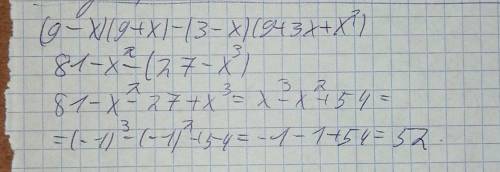 (9-x)(9+x)-(3-x)(9+3x+x²)
81-x²-(27-x³)
81-x²-27+x³=x³-x²+54=
=(-1)³-(-1)²+54=-1-1+54=52.